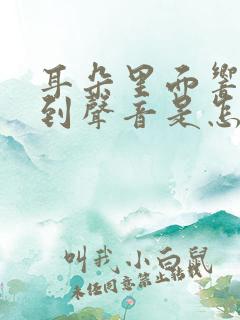 耳朵里面響
到聲音是怎
叫我小白鼠
未經同意禁止轉載